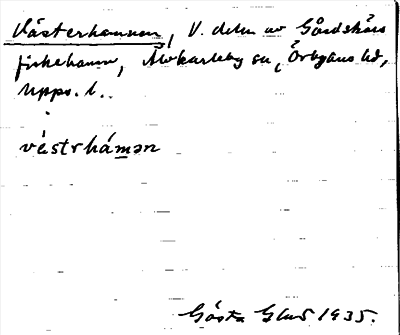 Västerhamnen, V. delen av Gårdskärs
fiskehamn, Älvkarleby sn, Örbyhus hd,
Upps. l.
véstrhámən
Gösta 1935.